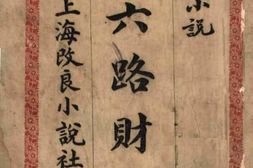 小説
六路財
上海改良小說社